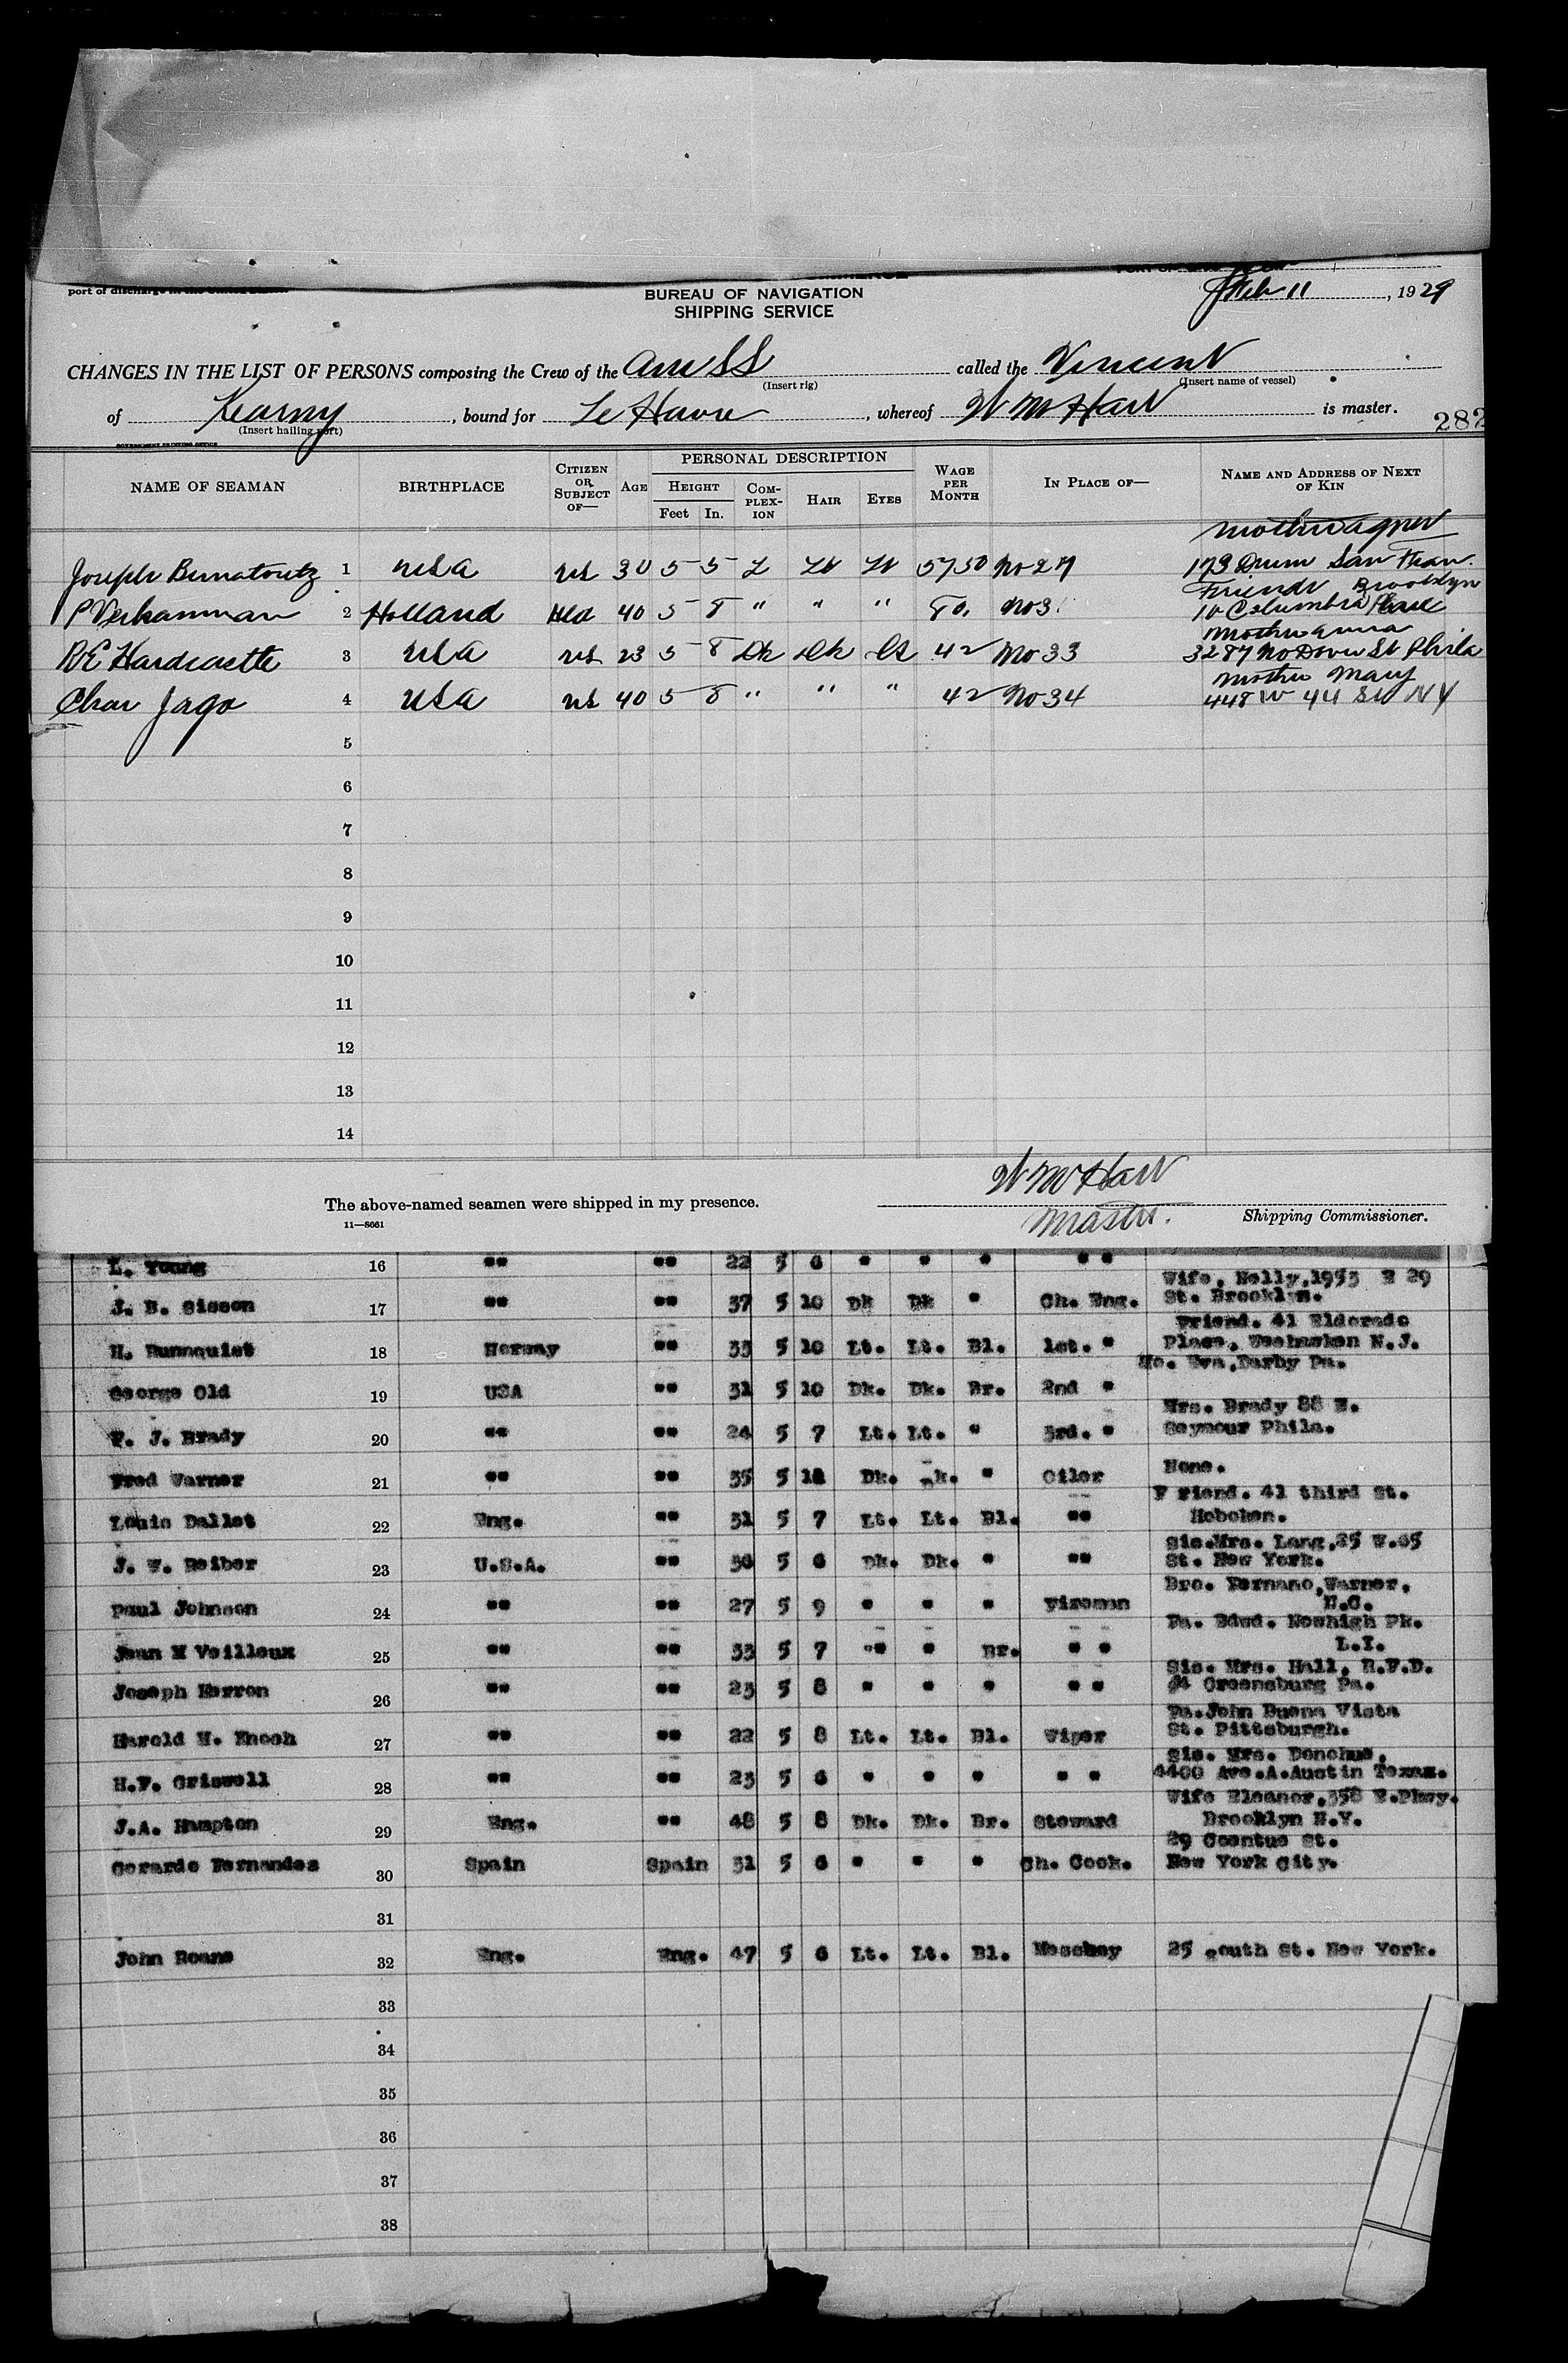 port of discharge in the United States
BUREAU OF NAVIGATION
SHIPPING SERVICE
Feb 11, 1929
CHANGES IN THE LIST OF PERSONS composing the Crew of the Am SS called the Vincent
(Insert rig) (Insert name of vessel)
of Kearny, bound for Le Havre, whereof W M Hart is master.
(Insert hailing port)
282
GOVERNMENT PRINTING OFFICE
NAME OF SEAMAN BIRTHPLACE CITIZEN OR SUBJECT OF— AGE PERSONAL DESCRIPTION HEIGHT Feet In. COMPLEXION HAIR EYES WAGE PER MONTH IN PLACE OF— NAME AND ADDRESS OF NEXT OF KIN
Mother Agnes
Joseph 1 USA US 30 5 5 L Lt Lt 5750 No 27 173 Drum San Fran.
Friend Brooklyn
P 2 Holland Hld 40 5 8 " " " 80. No 3 10 Columbia Place
Mother Anna
3 USA US 23 5 8 Dk Dk 42 No 33 3287 No St Phila
Mother Mary
Chas Jago 4 USA US 40 5 8 " " " 42 No 34 448 W 44 St NY
5
6
7
8
9
10
11
12
13
14
W M Hart
The above-named seamen were shipped in my presence.
Master. Shipping Commissioner.
11—8661
L. Young 16 "" "" 22 5 6 " " " " "
Wife, Nelly,1953 E 29
J. B. Sisson 17 "" "" 37 5 10 Dk Dk " Ch. Eng. St. Brooklyn.
Friend. 41 Eldorado
H. Runnquist 18 Norway "" 35 5 10 Lt. Lt. Bl. 1st. " Place, Weehawken N.J.
Mo. Eva,Darby Pa.
George Old 19 USA "" 31 5 10 Dk. Dk. Br. 2nd "
Mrs. Brady 88 E.
F. J. Brady 20 "" "" 24 5 7 Lt. Lt. " 3rd. " Seymour Phila.
Fred Warner 21 "" "" 35 5 Dk. Dk. " Oiler None.
F riend. 41 third St.
Louis Dallet 22 Eng. "" 31 5 7 Lt. Lt. Bl. "" Hoboken.
Sis.Mrs. Lang,25 W.65
J. W. Reiber 23 U.S.A. "" 30 5 6 Dk. Dk. " "" St. New York.
Bro. Fernano,Warner,
Paul Johnson 24 "" "" 27 5 9 " " " Fireman N.C.
Fa. Edwd. Noehigh Pk.
Jean M Veilleux 25 "" "" 33 5 7 "" " Br. " " L.I.
Sis. Mrs. Hall, R.F.D.
Joseph Herron 26 "" "" 23 5 8 " " " " " #4 Greensburg Pa.
Fa.John Buena Vista
Harold M. Enoch 27 "" "" 22 5 8 Lt. Lt. Bl. Wiper St. Pittsburgh.
Sis. Mrs. Donohue,
H.F. Criswell 28 "" "" 23 5 6 " " " " " 4400 Ave.A.Austin Texas.
Wife Eleanor,358 E.Pkwy.
J.A. Hampton 29 Eng. "" 48 5 8 Dk. Dk. Br. Steward Brooklyn N.Y.
29 Coentus St.
Gerardo Fernandes 30 Spain Spain 31 5 6 " " " Ch. Cook. New York City.
31
John Roane 32 Eng. Eng. 47 5 6 Lt. Lt. Bl. Messboy 25 South St. New York.
33
34
35
36
37
38